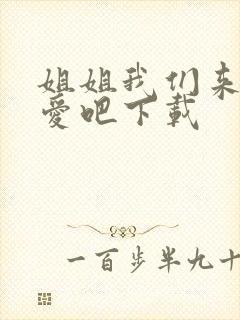 姐姐我们来
爱吧下载
一百步半九十